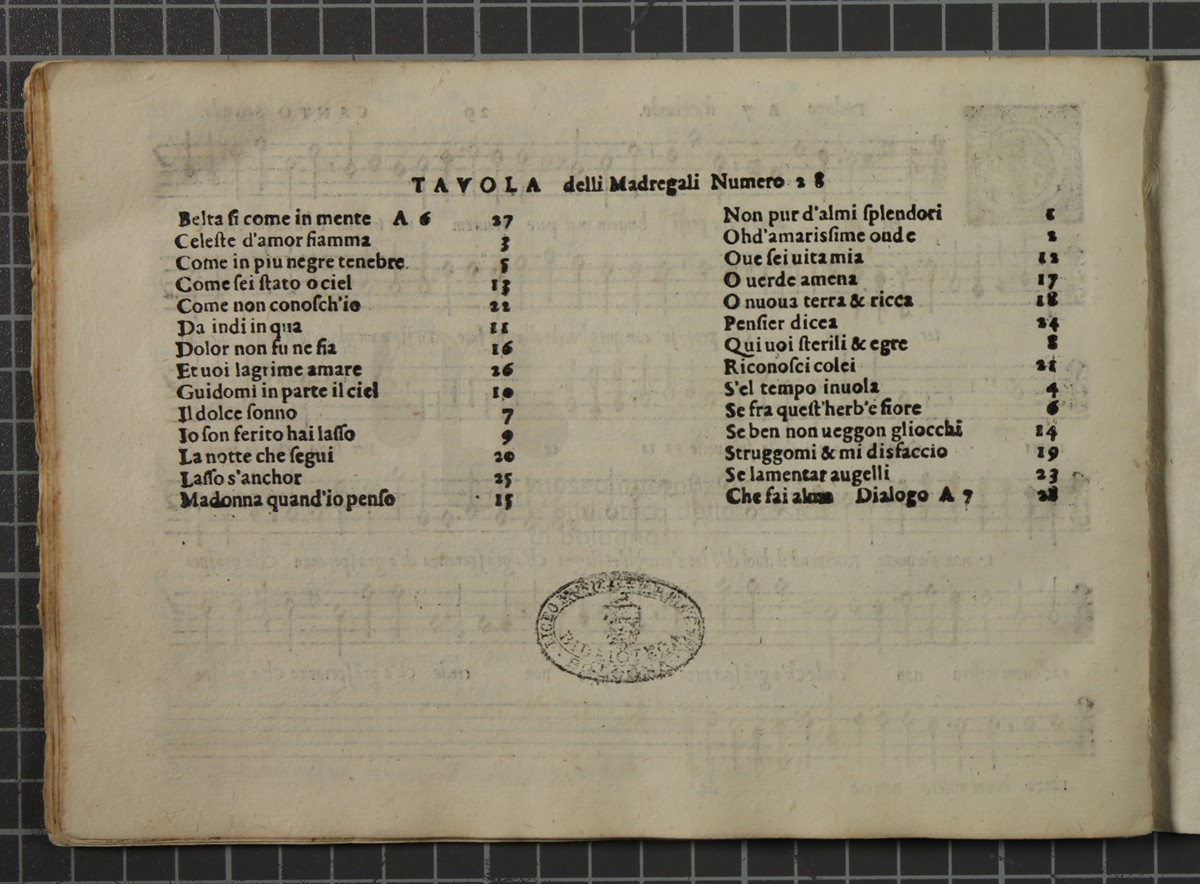 TAVOLA delli Madregali Numero 28
Belta ſi come in mente A 6 27
Celeſte d'amor fiamma 3
Come in piu negre tenebre. 5
Come ſei ſtato o ciel 13
Come non conoſch'io 22
Da indi in qua 11
Dolor non fu ne fia 16
Et uoi lagrime amare 26
Guidomi in parte il ciel 10
Il dolce ſonno 7
Io ſon ferito hai laſſo 9
La notte che ſegui 20
Laſſo s'anchor 25
Madonna quand'io penſo 15
Non pur d'almi ſplendori 1
Ohd'amariſsime onde 2
Oue ſei uita mia 12
O uerde amena 17
O nuoua terra & ricca 18
Penſier dicea 24
Qui uoi ſterili & egre 8
Riconoſci colei 21
S'el tempo inuola 4
Se fra queſt'herb'e fiore 6
Se ben non ueggon gliocchi 14
Struggomi & mi disfaccio 19
Se lamentar augelli 23
Che fai alma Dialogo A 7 28
LICEO
BIBLIOTECA